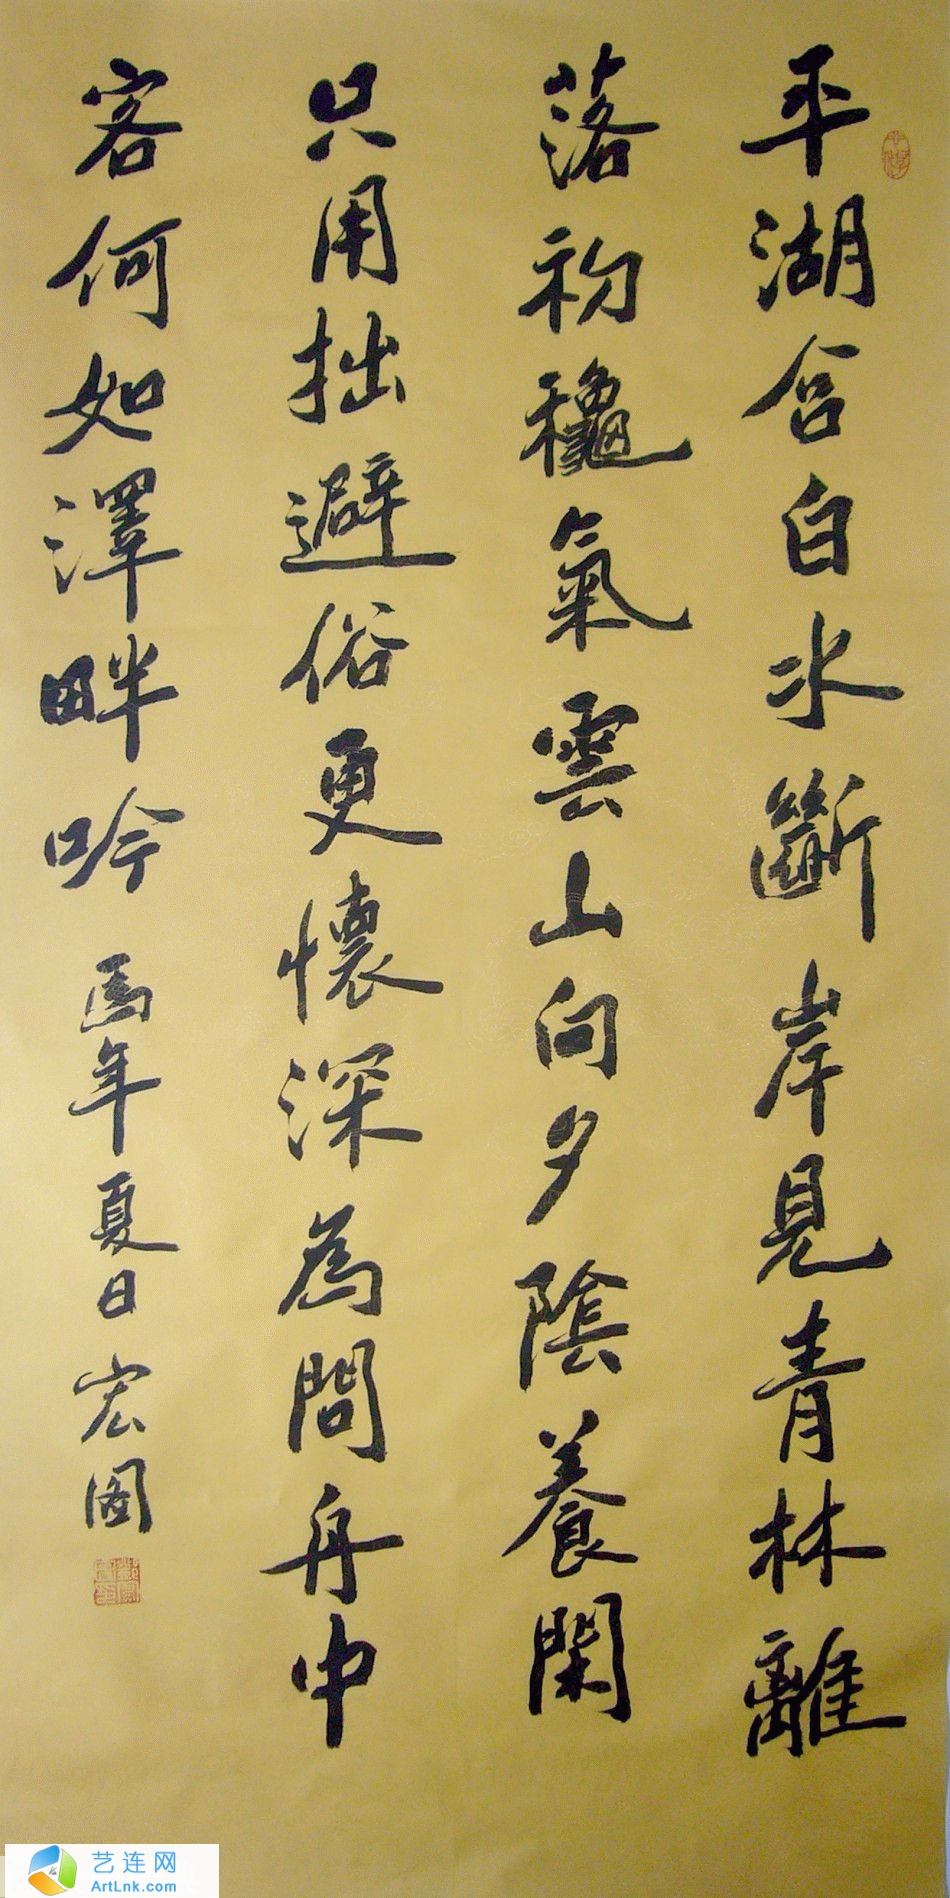 平湖含白水斷岸見青林離
落初穐氣雲山向夕陰養閑
只用拙避俗更懷深為問舟中
客何如澤畔吟 馬年夏日 宏圖
艺连网
ArtLnk.com